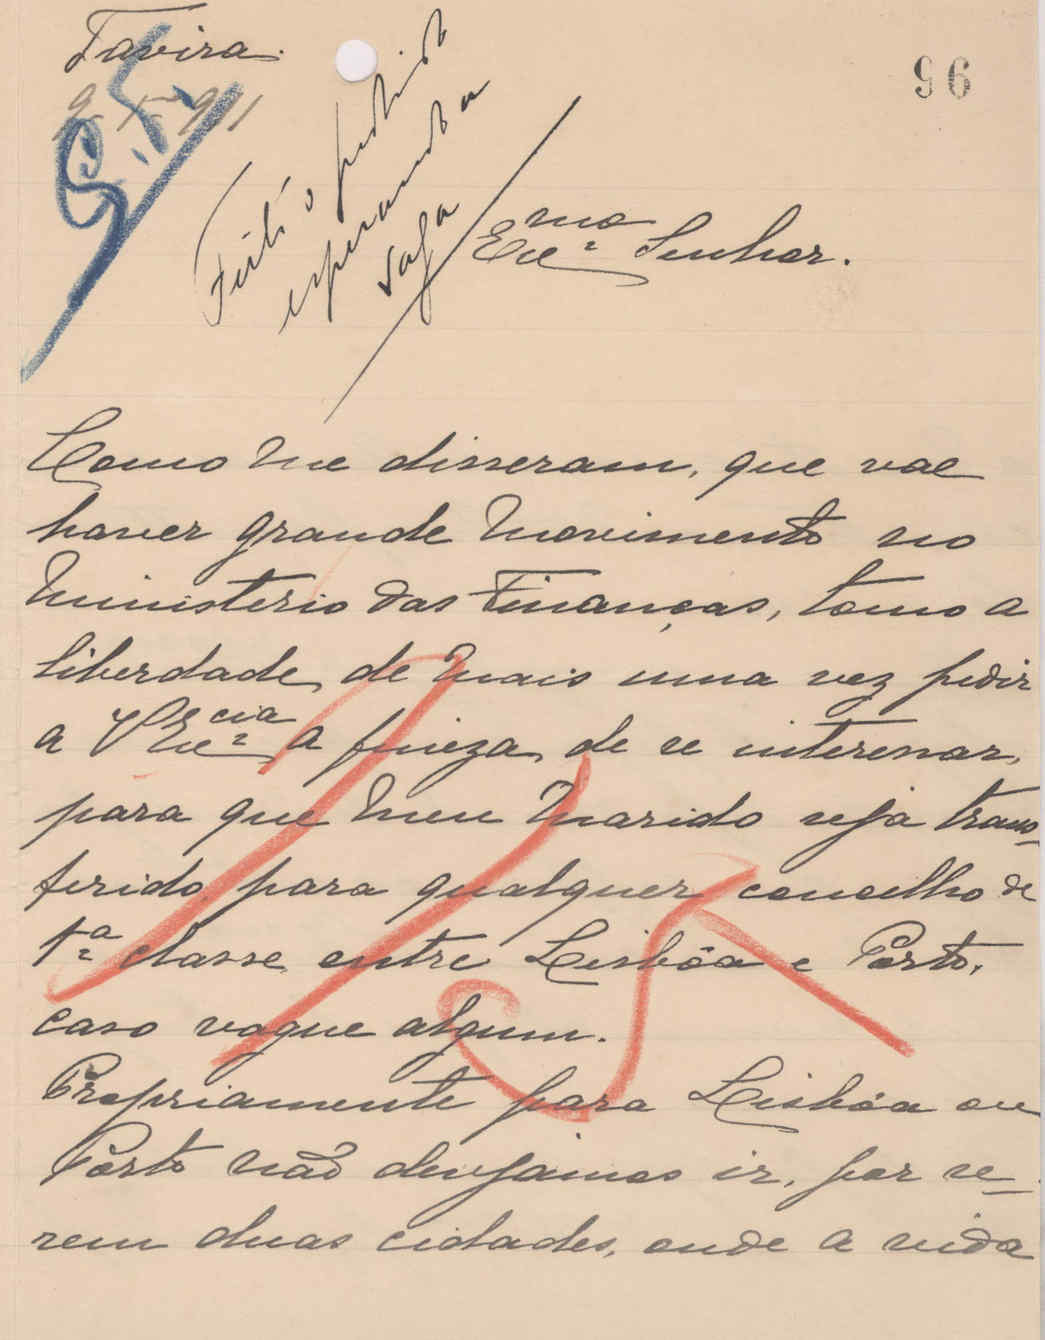 Tavira
9-5º-911
96
Feito o pedido
esperando a
vaga
Exc.mo Senhor.
Como me disseram, que vae
haver grande movimento no
Ministerio das Finanças, tomo a
liberdade, de mais uma vez pedir
a V Exc.cia a fineza, de se interessar,
para que meu marido seja trans-
ferido, para qualquer concelho de
1.ª classe, entre Lisbôa e Porto,
caso vague algum.
Propriamente para Lisbôa ou
Porto não desejamos ir, por se-
rem duas cidades, onde a vida